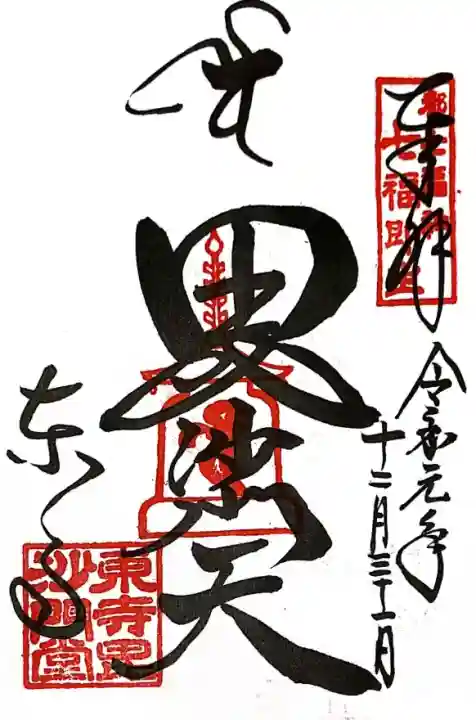 奉拝
都七福神
七福即生
令和元年
十二月三十一日
毘沙門天
東寺
東寺毘
沙門堂